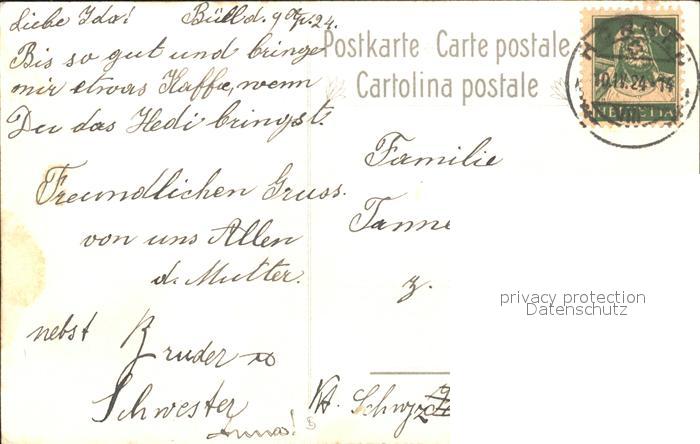 Liebe Ida! Büll d. 9 IV. 24.
Bis so gut und bringe
mir etwas Kaffe, wenn
Du das Hedi bringst.
Freundlichen Gruss.
von uns Allen
d. Mutter.
nebst Bruder u
Schwester
Anna!
Postkarte Carte postale
Cartolina postale
HELVETIA
Familie
Tanne
z.
Kt. Schwyz
privacy protection
Datenschutz